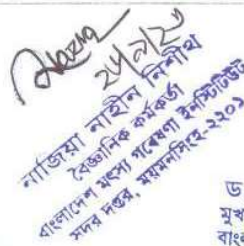 ২৫/৯/২৩
নাজিয়া নাহীন নিশীথ
বৈজ্ঞানিক কর্মকর্তা
বাংলাদেশ মৎস্য গবেষণা ইনস্টিটিউট
সদর দপ্তর, ময়মনসিংহ-২২০১
ড
মুখ
বাং